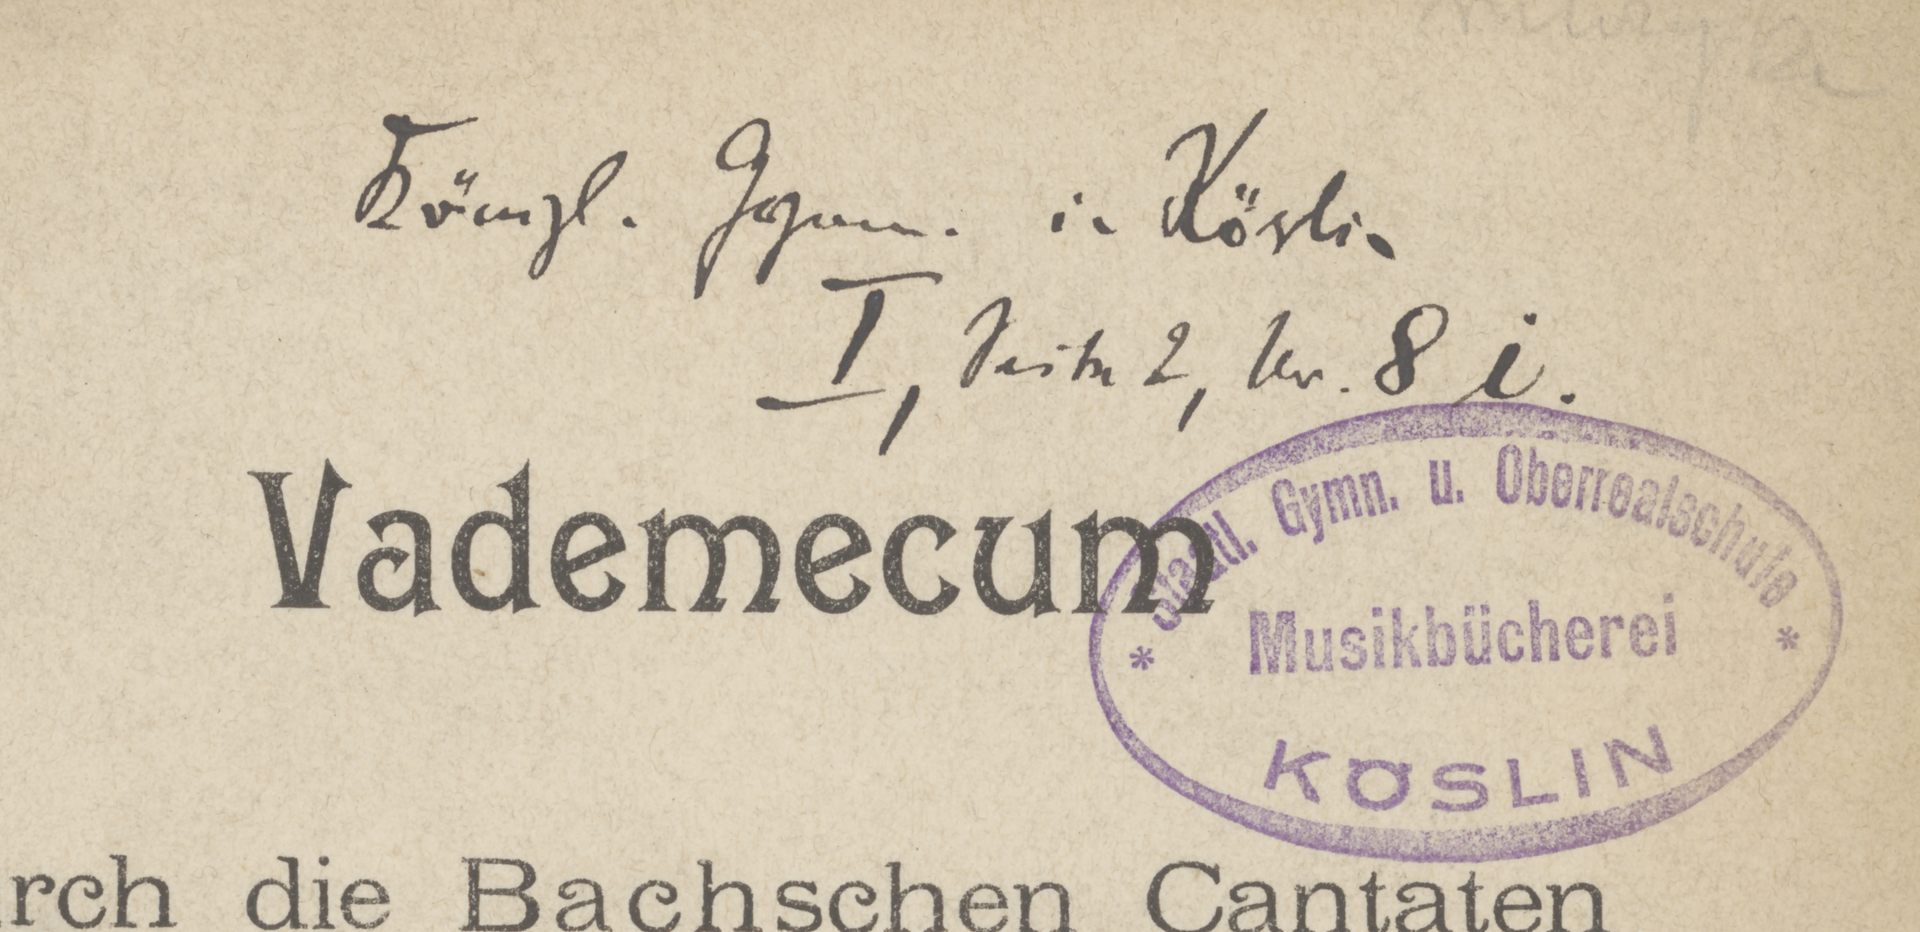 Königl. Gymn. in Köslin
I, Seite 2, Nr. 8 i.
Vademecum
Staatl. Gymn. u. Oberrealschule
* Musikbücherei *
KÖSLIN
die Bachschen Cantaten